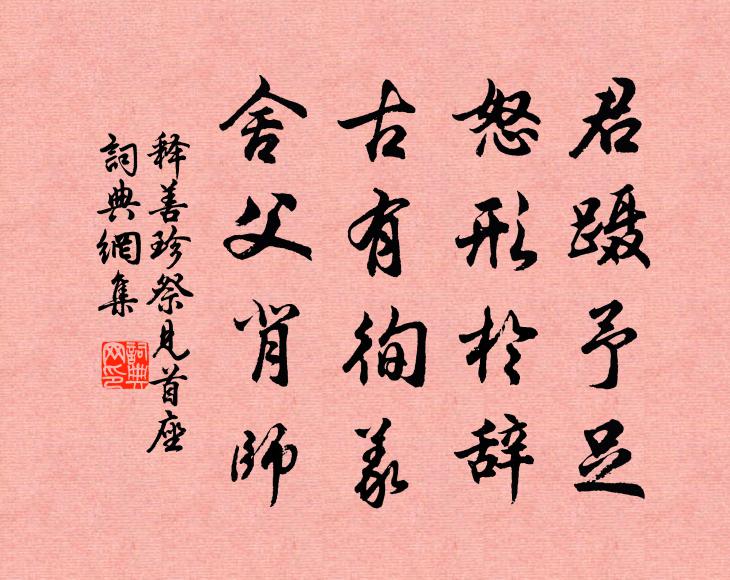 君蹑予足
怒形於辞
古有徇義
舍父肖師
释善珍祭見首座
詞典網集
詞典网印